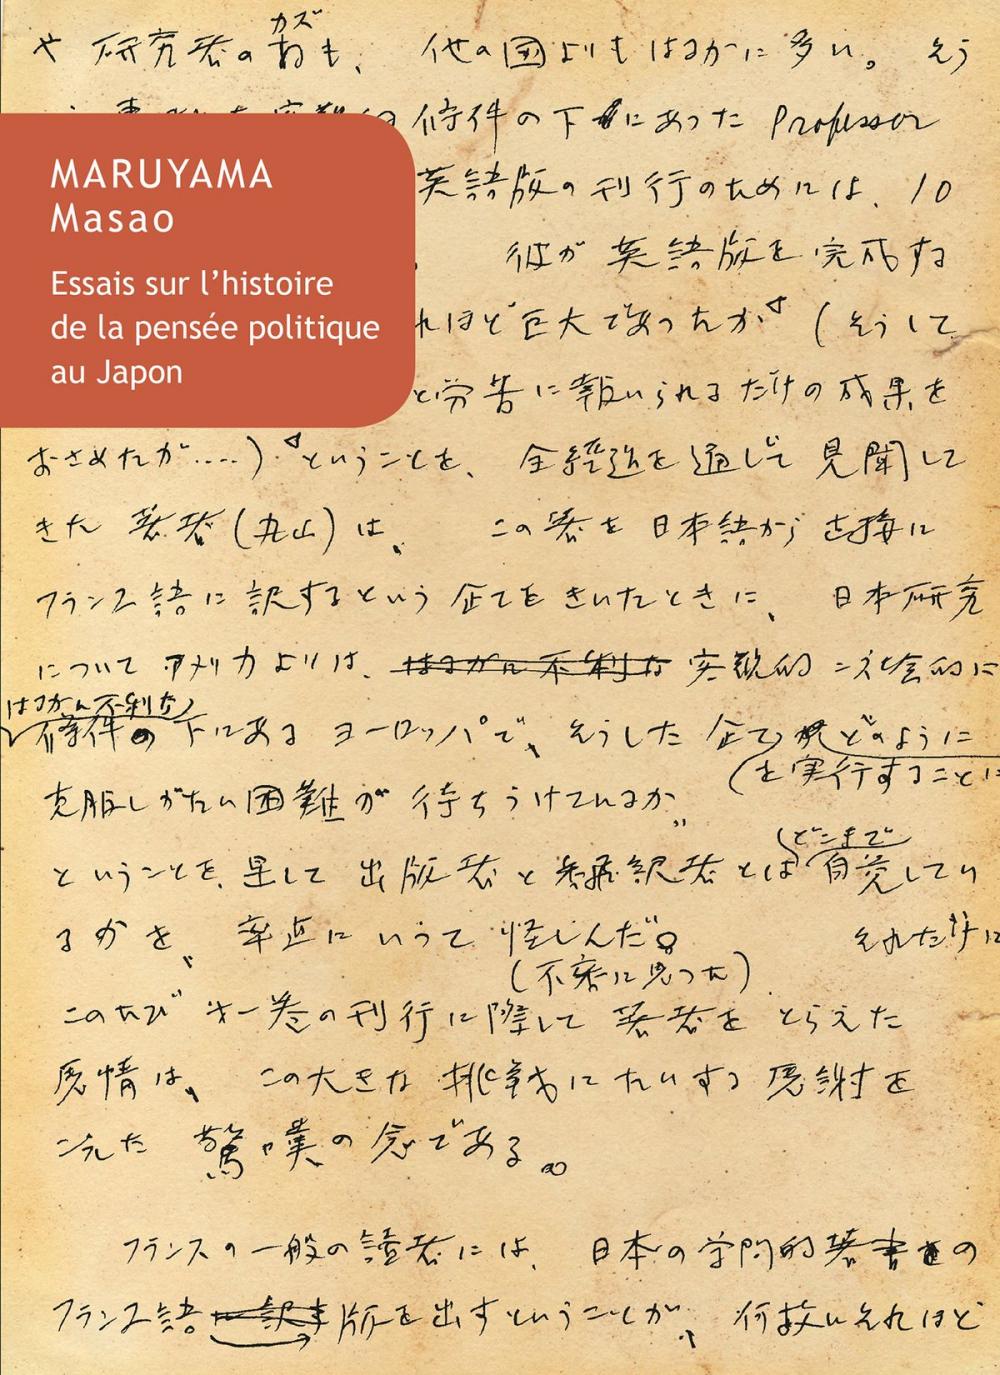 や 研究者の数も、 他の国よりもはるかに多い。 そう
カズ
条件の下にあった Professor
MARUYAMA
Masao
Essais sur l'histoire
de la pensée politique
au Japon
英語版の刊行のためには、10
彼が 英語版を 完成する
れほど巨大であったか (そうして
と労苦に報いられるだけの成果を
おさめたが....) ということを、 全経過を通じて 見聞して
きた 著者(丸山)は、 この著を日本語から 直接に
フランス語に訳するという 企てをきいたときに、 日本研究
について アメリカよりは、はるかに不利な 客観的=社会的に
はるかに不利な
條件の下にある ヨーロッパで、そうした 企て どのように
(を実行することに
克服しがたい困難が 待ちうけているか"
ということを、果して 出版者と飜訳者とは 自覚してい
(どこまで
るかを 率直にいって 怪しんだ。 それだけに
(不審に思った)
このたび 第一巻の刊行に際して 著者を とらえた
感情は、 この大きな 挑戦にたいする 感謝を
こえた 驚嘆の念である。
フランスの一般の読者には、 日本の学問的著書の
フランス語版を出すということが、 何故にそれほど